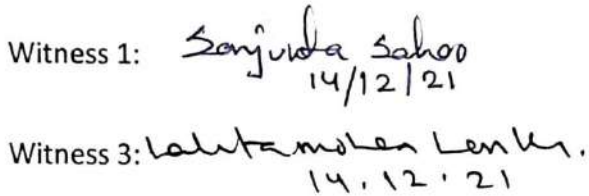 Witness 1: Sanjukta Sahoo
14/12/21
Witness 3: Lalitamohan Lenka.
14.12.21